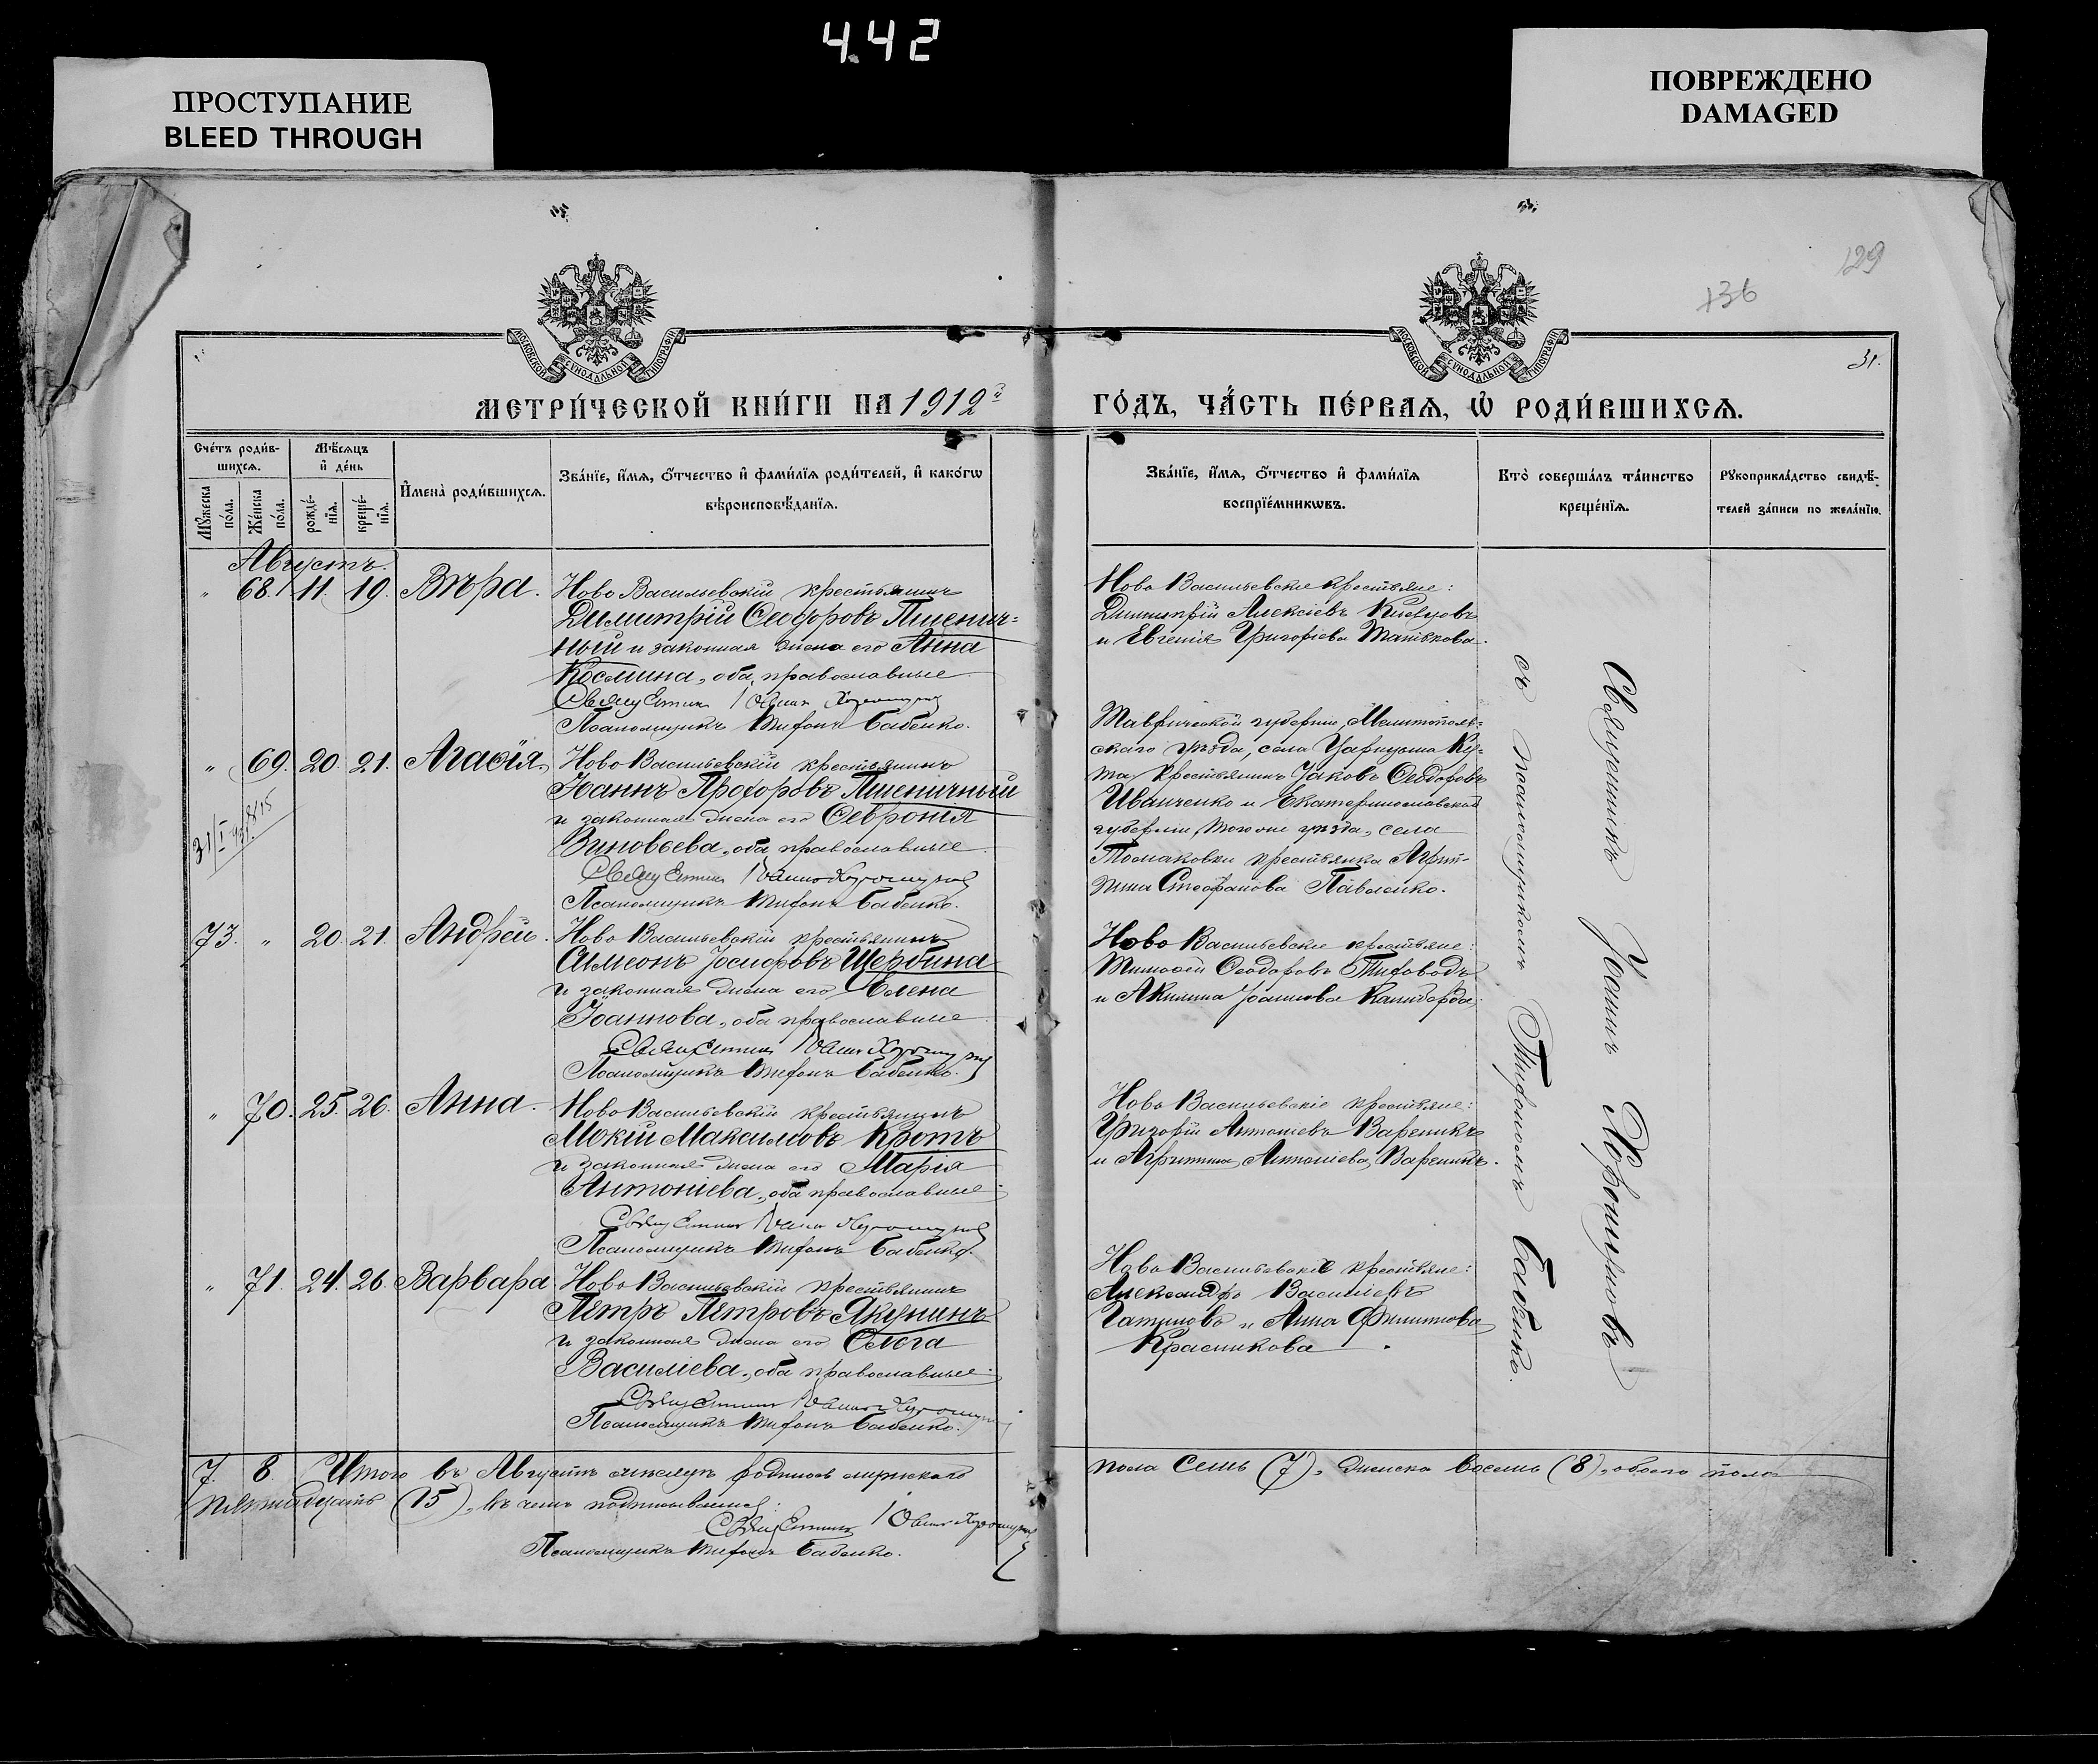 4.42
ПРОСТУПАНИЕ
BLEED THROUGH
ПОВРЕЖДЕНО
DAMAGED
129
136
31.
МОСКОВСКОЙ СѴНОДАЛЬНОЙ ТИПОГРАФІИ
МОСКОВСКОЙ СѴНОДАЛЬНОЙ ТИПОГРАФІИ
МЕТРИ́ЧЕСКОЙ КНИ́ГИ НА 1912й
ГО́ДЪ, ЧА́СТЬ ПЕ́РВАѦ, Ѡ҆ РОДИ́ВШИХСѦ.
Сче́тъ роди́в-
шихсѧ.
Мꙋ́жеска по́ла.
Же́нска по́ла.
Мѣ́сѧцъ
и҆ де́нь
рожде́-
нїѧ.
креще́-
нїѧ.
И҆мена̀ роди́вшихсѧ.
Зва́нїе, и҆́мѧ, ѻ҆́тчество и҆ фами́лїѧ роди́телей, и҆ како́гѡ
вѣроисповѣ́данїѧ.
Зва́нїе, и҆́мѧ, ѻ҆́тчество и҆ фами́лїѧ
воспрїе́мникѡвъ.
Кто̀ соверша́лъ та́инство
креще́нїѧ.
Рꙋкоприкла́дство свидѣ́-
телей за́писи по жела́нїю.
Августъ.
" 68. 11. 19. Вѣра. Ново Васильевскій крестьянинъ
Димитрій Ѳеодоровъ Пшенич=
ный и законная жена его Анна
Космина, оба православные
Священникъ Іоаннъ
Псаломщикъ Тифонъ Бабенко.
Ново Васильевскіе крестьяне:
Димитрій Алексіевъ
и Евгенія Григоріева
" 69. 20. 21. Агаѳія. Ново Васильевскій крестьянинъ
Іоаннъ Прохоровъ Пшеничный
и законная жена его Ѳевронія
Зиновьева, оба православные
Священникъ Іоаннъ
Псаломщикъ Тифонъ Бабенко.
Таврической губерніи, Мелитополь=
скаго уѣзда, села
крестьянинъ Іаковъ Ѳеодоровъ
Иванченко и Екатеринославской
губерніи, того же уѣзда, села
Томаковки крестьянка Агрип-
пина Стефанова Павленко.
73. " 20. 21. Андрей. Ново Васильевскій крестьянинъ
Симеонъ Іосифовъ Щербина
и законная жена его Елена
Іоаннова, оба православные
Священникъ Іоаннъ
Псаломщикъ Тифонъ Бабенко.
Ново Васильевскіе крестьяне:
Тимоѳей Ѳеодоровъ
и Акилина Іоаннова
" 70. 25. 26. Анна. Ново Васильевскій крестьянинъ
Мокій Максимовъ Кротъ
и законная жена его Марія
Антоніева, оба православные
Священникъ Іоаннъ
Псаломщикъ Тифонъ Бабенко.
Ново Васильевскіе крестьяне:
Григорій Антоніевъ Вареникъ
и Агриппина Антоніева Вареникъ.
" 71. 24. 26. Варвара Ново Васильевскій крестьянинъ
Петръ Петровъ Якунинъ
и законная жена его Ольга
Василіева, оба православные
Священникъ Іоаннъ
Псаломщикъ Тифонъ Бабенко.
Ново Васильевскіе крестьяне:
Александръ Василіевъ
и Анна Филиппова
Красникова
Священникъ Іоаннъ
съ псаломщикомъ Тифономъ Бабенко.
7. 8. Итого въ Августѣ мѣсяцѣ родилось мужескаго
пола семь (7), женска восемь (8), обоего пола
пятнадцать (15), въ чемъ подписываемся:
Священникъ Іоаннъ
Псаломщикъ Тифонъ Бабенко.